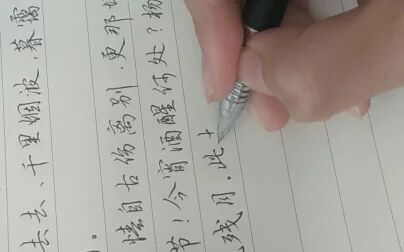 去去、千里烟波,暮霭
。
情自古伤离别,更那
节!今宵酒醒何处?杨
残月。此